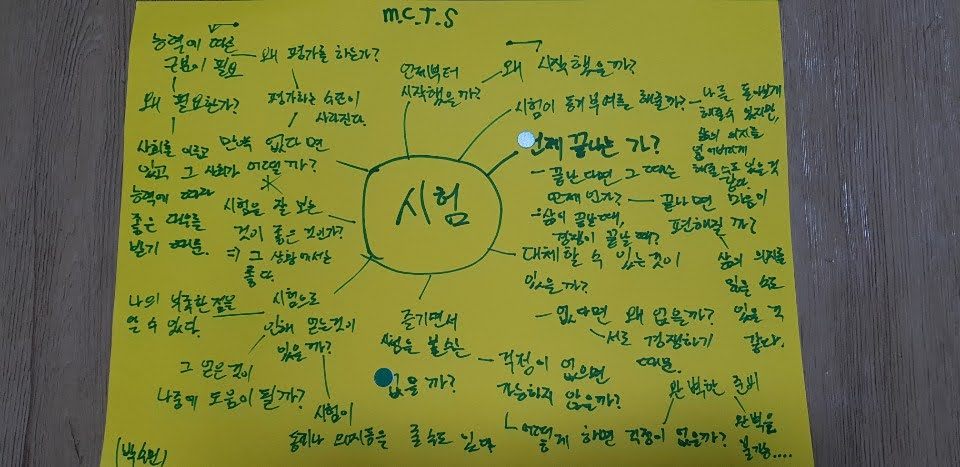 M.C.T.S
능력에 따른
구분이 필요
왜 평가를 하는가?
왜 필요한가?
평가하는 수단이
사라진다.
사회를 이루고
있고 그 사회가
능력에 따라
좋은 대우를
받기 때문.
만약 없다면
어떨까?
시험을 잘 보는
것이 좋은 것인가?
=> 그 상황에서는
좋다.
언제부터
시작했을까?
왜 시작했을까?
시험이 동기부여를 해줄까?
나를 돌아보게
해줄수 있지만,
삶의 의지를
잃어버리게
해줄 수도 있을 것
같다.
시험
언제 끝나는 가?
- 끝난다면 그 때는
언제인가?
→삶이 끝날 때,
경쟁이 끝날 때?
끝나면 마음이
편해질 까?
삶의 의지를
잃을 수도
있을 것
같다.
대체할 수 있는것이
있을까?
- 없다면 왜 없을까?
서로 경쟁하기
때문.
시험으로
인해 얻는것이
있을까?
나의 부족한 점을
알 수 있다.
그 얻은것이
나중에 도움이 될까?
시험이
승리나 의지등을 줄 수도 있다
즐기면서
시험을 볼 수는
없을 까?
걱정이 없으면
가능하지 않을까?
어떻게 하면 걱정이 없을까?
완벽한 준비
완벽은
불가능....